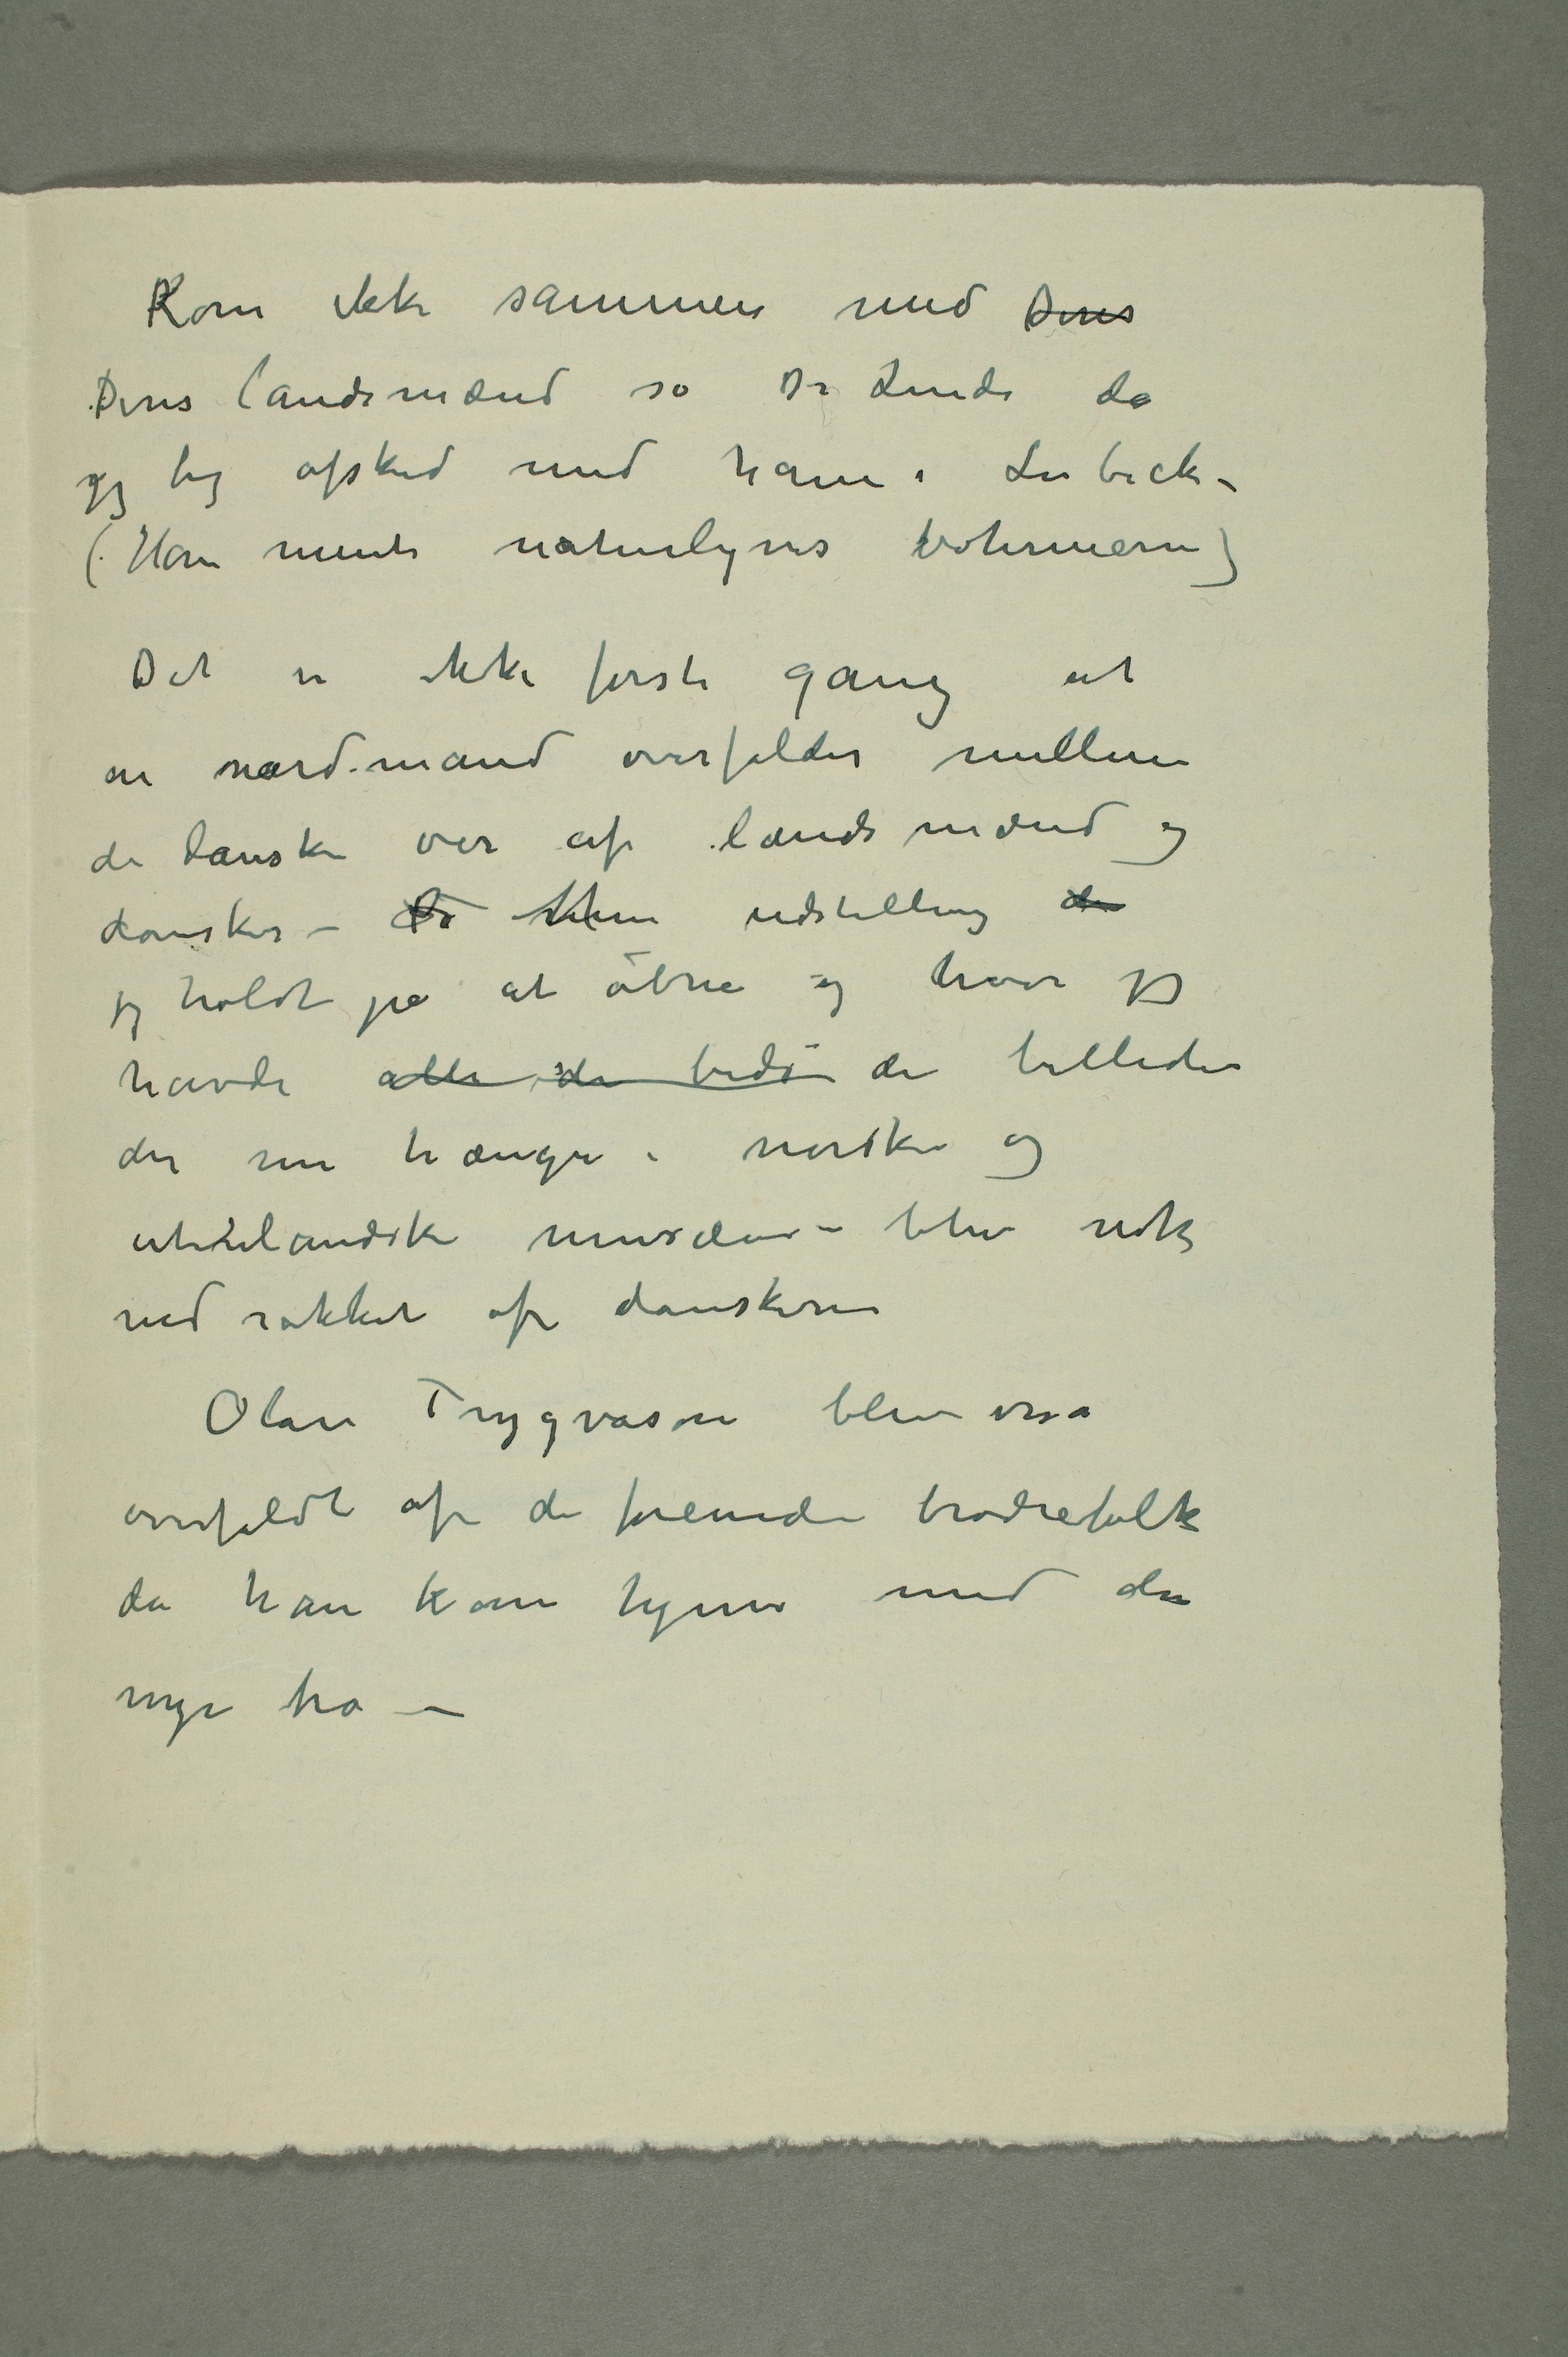 Kom ikke sammen med Deres
Deres landsmænd sa Dr Linde da
jeg tog afsked med ham i Lübeck –
(Han mente naturligvis bohemerne)
Det er ikke første gang at
en nordmand overfaldes mellem
de danske øer af landsmænd og
dansker – udstilling den
jeg holdt på at åbne og hvor jeg
havde alle de beds de billeder
der nu hænger i norske og
utenlandske musæer – blev nok
ned rakket af danskerne
Olav Trygvason blev også
overfaldt af de forenede brødrefolk
da han kom hjem med den
nye tro –